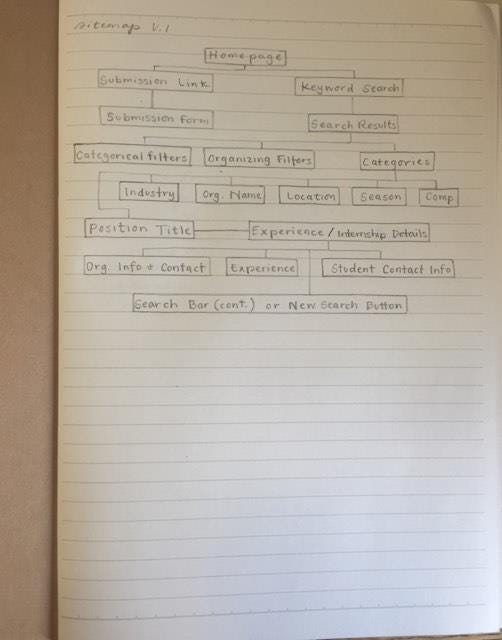 sitemap V.1
Homepage
Submission Link Keyword Search
Submission form Search Results
Categorical filters Organizing Filters Categories
Industry Org. Name Location Season Comp
Position Title Experience/Internship Details
Org. Info + Contact Experience Student Contact Info
Search Bar (cont.) or New Search Button